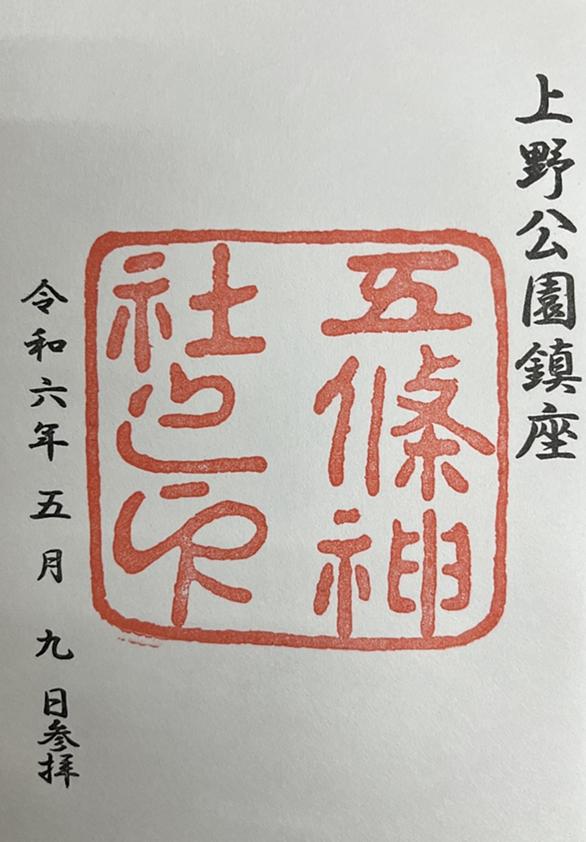 上野公園鎮座
五條神
社之印
令和六年五月九日参拝